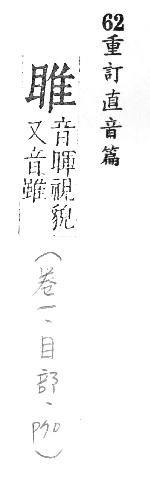 62重訂直音篇
睢
音暉視貌
又音雖
（卷一、目部、